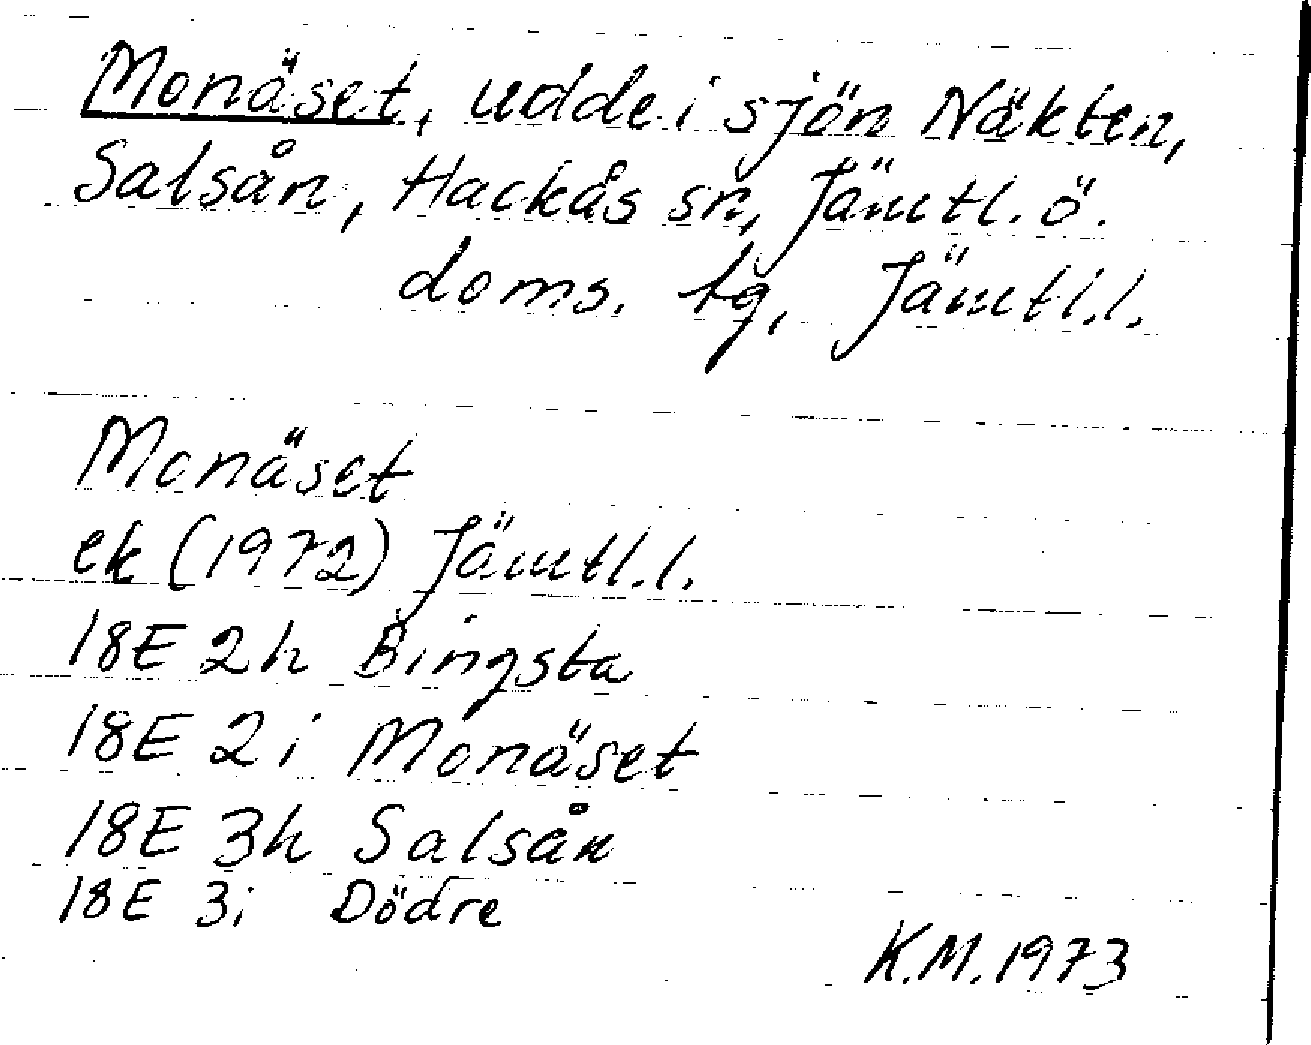 Monäset, udde i sjön Näkten,
Salsån, Hackås sn, Jämtl. ö.
doms. tg, Jämtl.l.
Monäset
ek (1972) Jämtl.l.
18E 2h Bingsta
18E 2i Monäset
18E 3h Salsån
18E 3i Dödre
K.M. 1973